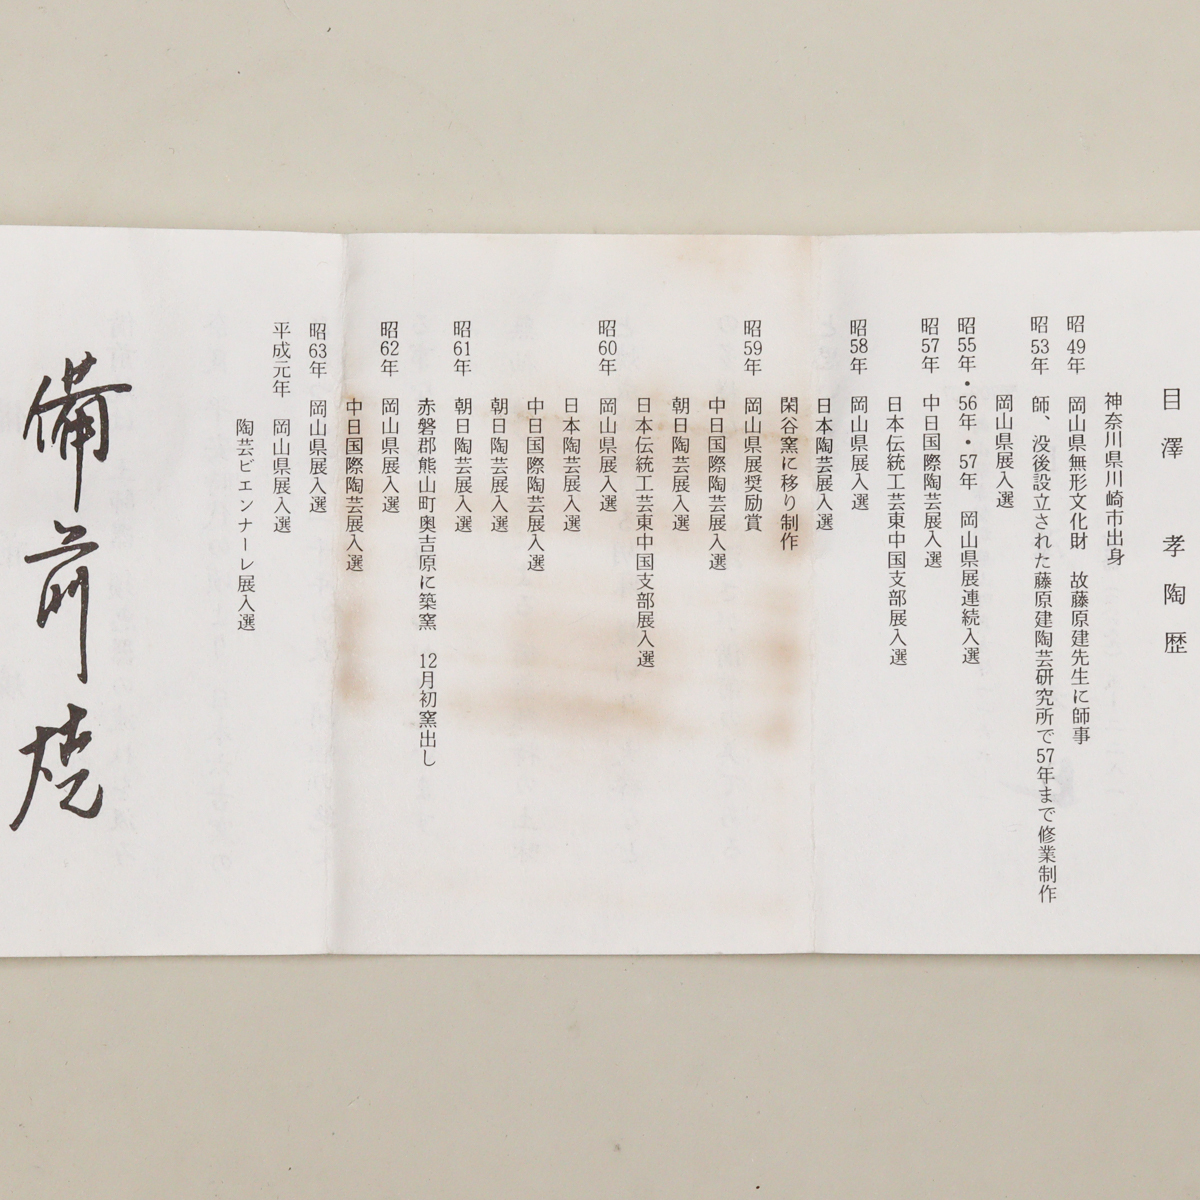 目澤　孝陶歴
神奈川県川崎市出身
昭49年　岡山県無形文化財　故藤原建先生に師事
昭53年　師、没後設立された藤原建陶芸研究所で57年まで修業制作
岡山県展入選
昭55年・56年・57年　岡山県展連続入選
昭57年　中日国際陶芸展入選
日本伝統工芸東中国支部展入選
昭58年　岡山県展入選
日本陶芸展入選
閑谷窯に移り制作
昭59年　岡山県展奨励賞
中日国際陶芸展入選
朝日陶芸展入選
日本伝統工芸東中国支部展入選
昭60年　岡山県展入選
日本陶芸展入選
中日国際陶芸展入選
朝日陶芸展入選
昭61年　朝日陶芸展入選
赤磐郡熊山町奥吉原に築窯　12月初窯出し
昭62年　岡山県展入選
中日国際陶芸展入選
昭63年　岡山県展入選
平成元年　岡山県展入選
陶芸ビエンナーレ展入選
備前焼